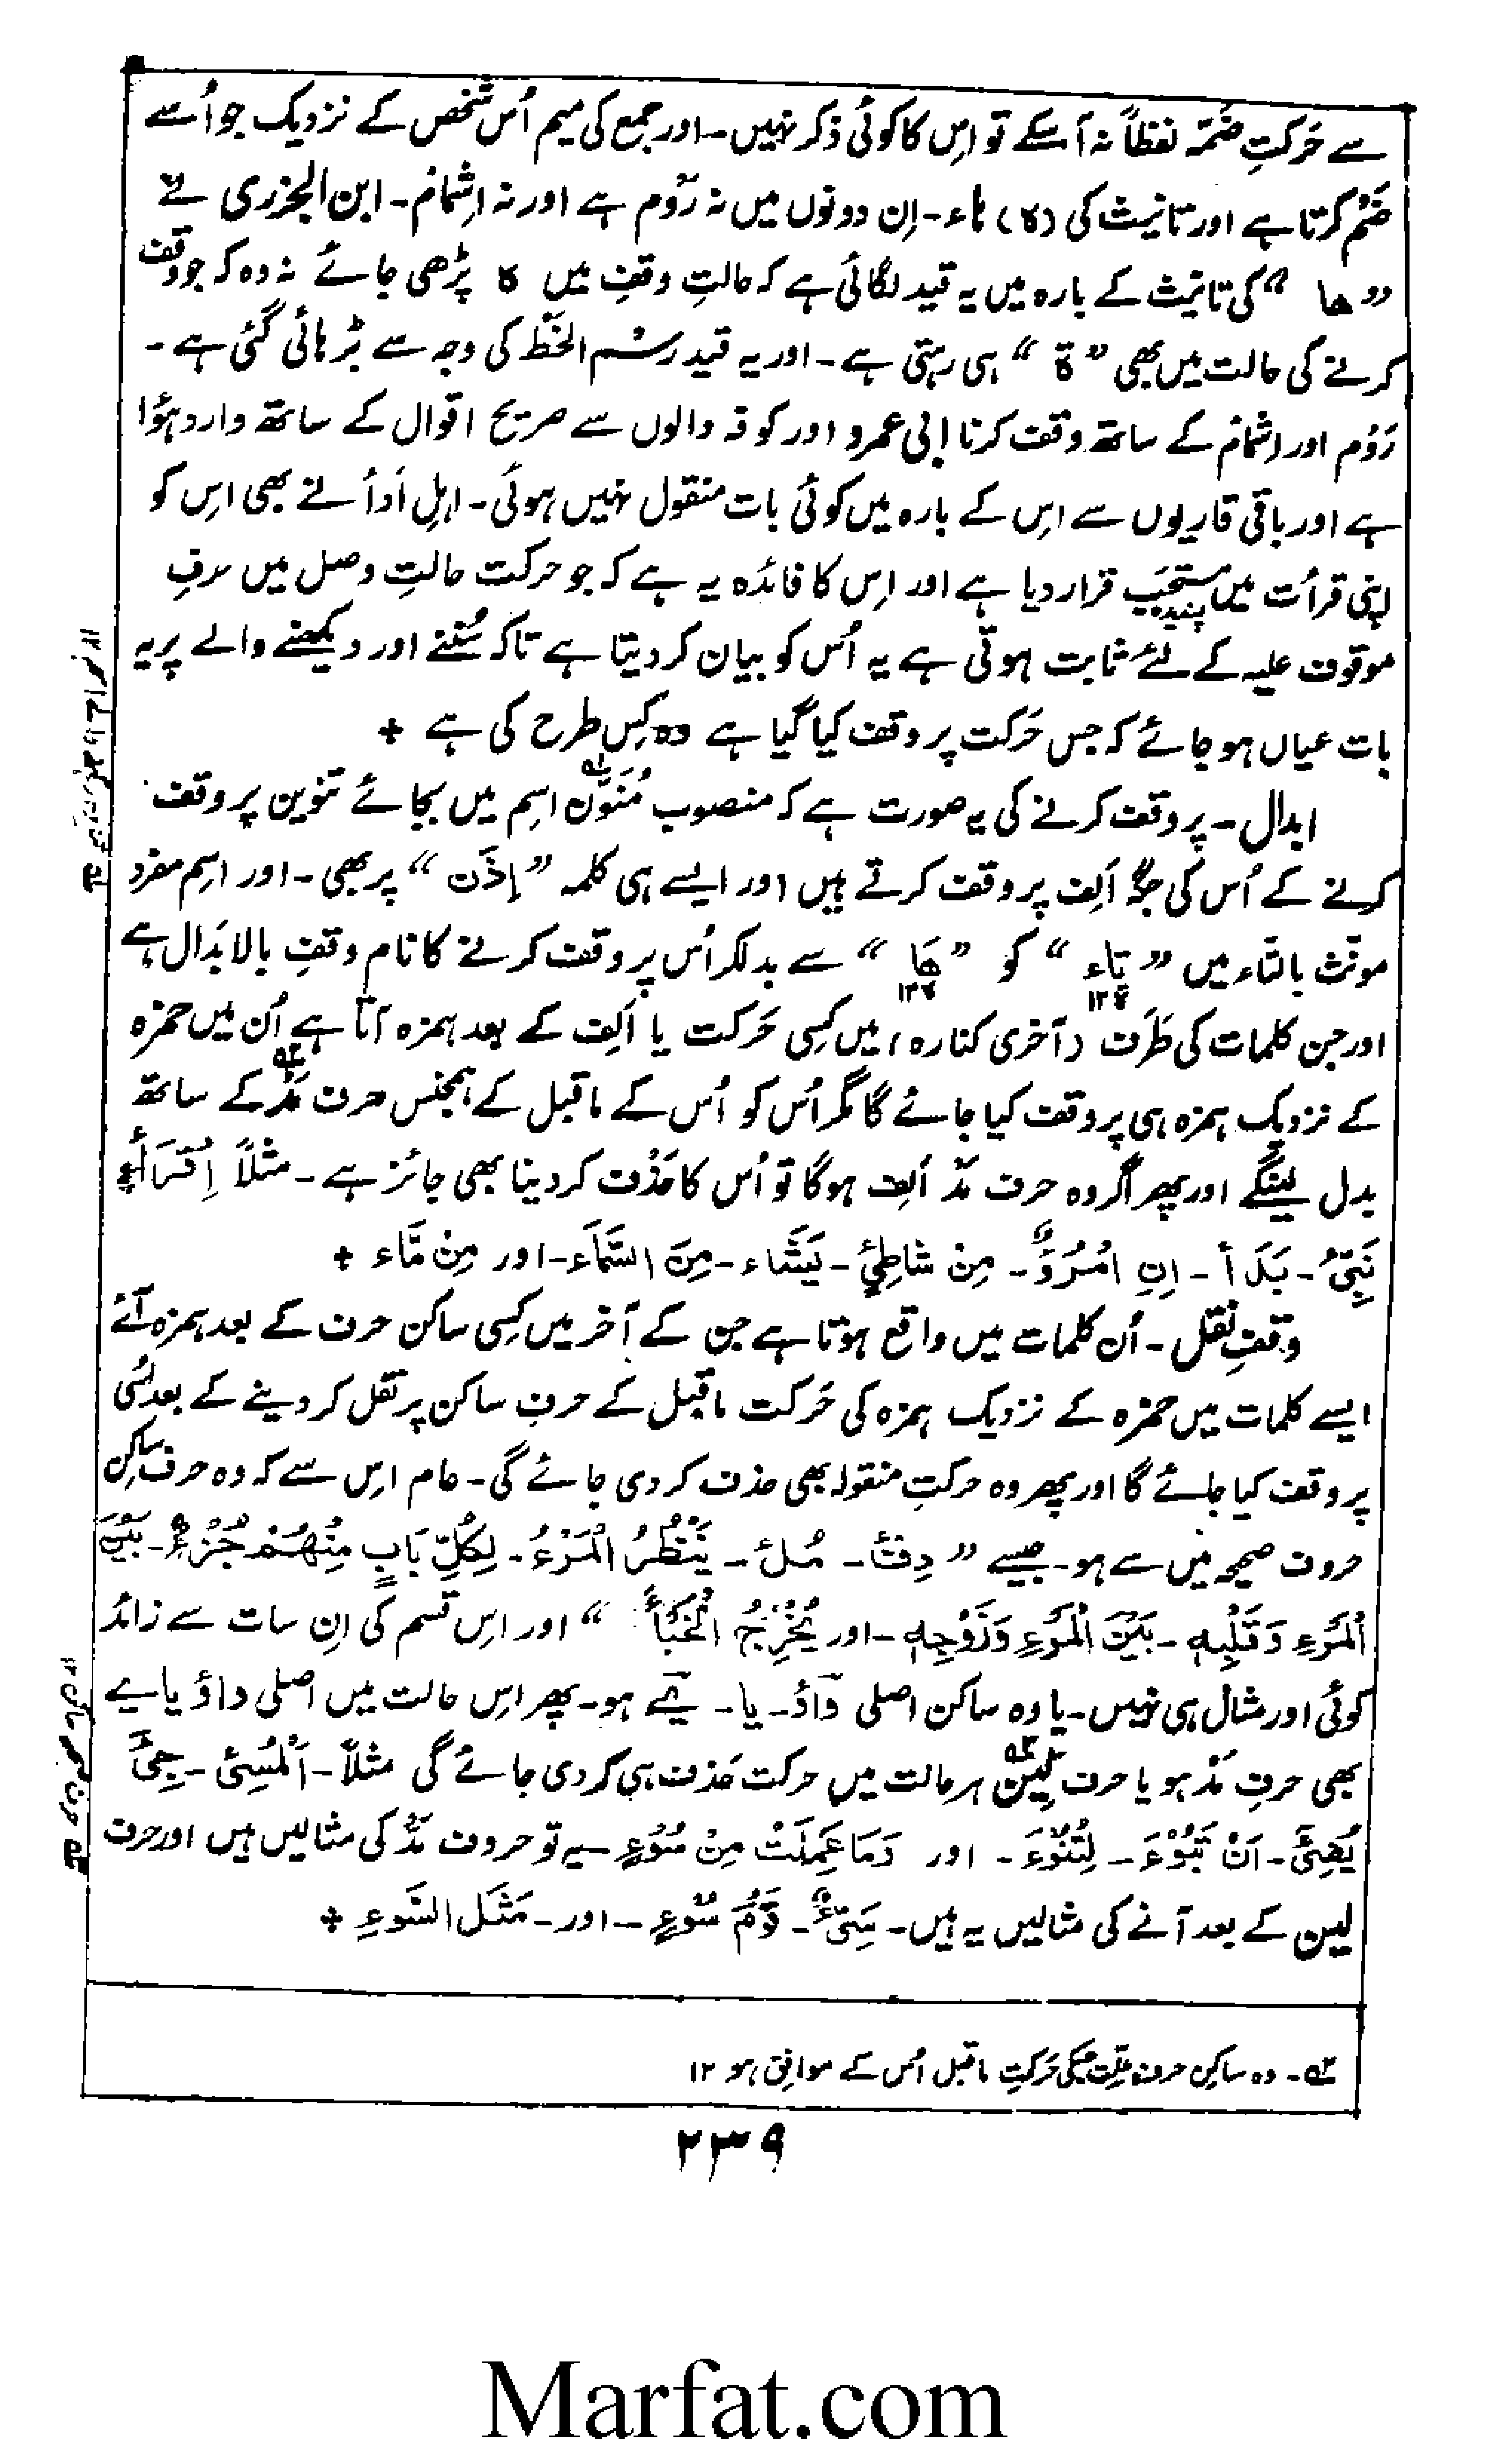 سے حَرکتِ ضَمّہ لفظاً نہ آ سکے تو اِس کا کوئی ذکر نہیں۔ اور جمع کی میم اُس شخص کے نزدیک جو اُسے
ضَم کرتا ہے اور تانیث کی (ۃ) ہاء۔ اِن دونوں میں نہ رَوْم ہے اور نہ اِشمام۔ ابن الجزری نے
”ھا“ کی تانیث کے بارہ میں یہ قید لگائی ہے کہ حالتِ وقف میں ہ پڑھی جائے نہ وہ کہ جو وقف
کرنے کی حالت میں بھی ”ۃ“ ہی رہتی ہے۔ اور یہ قید رسم الخَط کی وجہ سے بڑہائی گئی ہے۔
رَوْم اور اشمام کے ساتھ وقف کرنا ابی عمرو اور کوفہ والوں سے صریح اقوال کے ساتھ وارد ہؤا
ہے اور باقی قاریوں سے اس کے بارہ میں کوئی بات منقول نہیں ہوئی۔ اہلِ اَدأ نے بھی اِس کو
اپنی قرأت میں مستحَب پسندیدہ قرار دیا ہے اور اِس کا فائدہ یہ ہے کہ جو حرکت حالتِ وصل میں حرفِ
موقوف علیہ کے لئے ثابت ہوتی ہے یہ اُس کو بیان کر دیتا ہے تاکہ سُننے اور دیکھنے والے پر یہ
بات عیاں ہو جائے کہ جس حَرکت پر وقف کیا گیا ہے وہ کِس طرح کی ہے +
ابدال۔ پر وقف کرنے کی یہ صورت ہے کہ منصوب مُنَوَّن اسِم میں بجائے تنوین پر وقف
کرنے کے اُس کی جگہ اَلِف پر وقف کرتے ہیں اور ایسے ہی کلمہ ”إِذَن“ پر بھی۔ اور اسِم مفرد
مونّث بالتّاء میں ”تَاء“ کو ”ھَا“ سے بدلکر اُس پر وقف کرنے کا نام وقفِ بالابدَال ہے
اور جن کلمات کی طَرَف (آخری کنارہ) میں کسِی حَرکت یا اَلِف کے بعد ہمزہ آتا ہے اُن میں حمزہ
کے نزدیک ہمزہ ہی پر وقف کیا جائے گا مگر اُس کو اُس کے ماقبل کے ہمجنس حرف مَدّ کے ساتھ
بدل لینگے اور پھر اگر وہ حرف مَدّ اَلِف ہوگا تو اُس کا حَذْف کر دینا بھی جائز ہے۔ مثلاً اِقْرَأْ۔
نَبِیّْ۔ بَدَأ۔ اِنِ امْرُؤٌ۔ مِنْ شَاطِیِٔ۔ یَشَاء۔ مِنَ السَّمَاء۔ اور مِنْ مَّاء +
وقفِ نقل۔ اُن کلمات میں واقع ہوتا ہے جن کے آخر میں کسِی ساکن حرف کے بعد ہمزہ آئے
ایسے کلمات میں حمزہ کے نزدیک ہمزہ کی حَرکت ماقبل کے حرفِ ساکن پر نقل کر دینے کے بعد اُسی
پر وقف کیا جائے گا اور پھر وہ حرکتِ منقولہ بھی حذف کر دی جائے گی۔ عام اِس سے کہ وہ حرف ساکن
حروف صحیح میں سے ہو۔ جیسے ”دِفْءٌ۔ مِلْء۔ یَنْظُرُ الْمَرْءُ۔ لِکُلِّ بَابٍ مِنْھُمْ جُزْءٌ۔ بَیْنَ
الْمَرْءِ وَقَلْبِہٖ۔ بَیْنَ الْمَرْءِ وَزَوْجِہٖ۔ اور یُخْرِجُ الْخَبْأَ“ اور اِس قسم کی اِن سات سے زائد
کوئی اور مثال ہی نہیں۔ یا وہ ساکن اصلی وَاؤ۔ یا۔ یَے ہو۔ پھر اس حالت میں اصلی واؤ یا یے
بھی حرفِ مَدّ ہو یا حرف لِین ہر حالت میں حرکت حَذف ہی کر دی جائے گی مثلاً۔ اَلْمُسِیْٔ۔ جِیْٔ
یُضِیْٔ۔ اَنْ تَبُوْءَ۔ لِتَنُوْءَ۔ اور وَمَا عَمِلَتْ مِنْ سُوْءٍ یہ تو حروف مَدّ کی مثالیں ہیں اور حرف
لین کے بعد آنے کی مثالیں یہ ہیں۔ شَیْءٌ۔ قَوْمَ سَوْءٍ۔ اور۔ مَثَل السَّوءِ +
وہ ساکِن حرف علّت جسکی حَرکتِ ماقبل اُس کے موافق ہو ۱۲
۲۳۹
Marfat.com